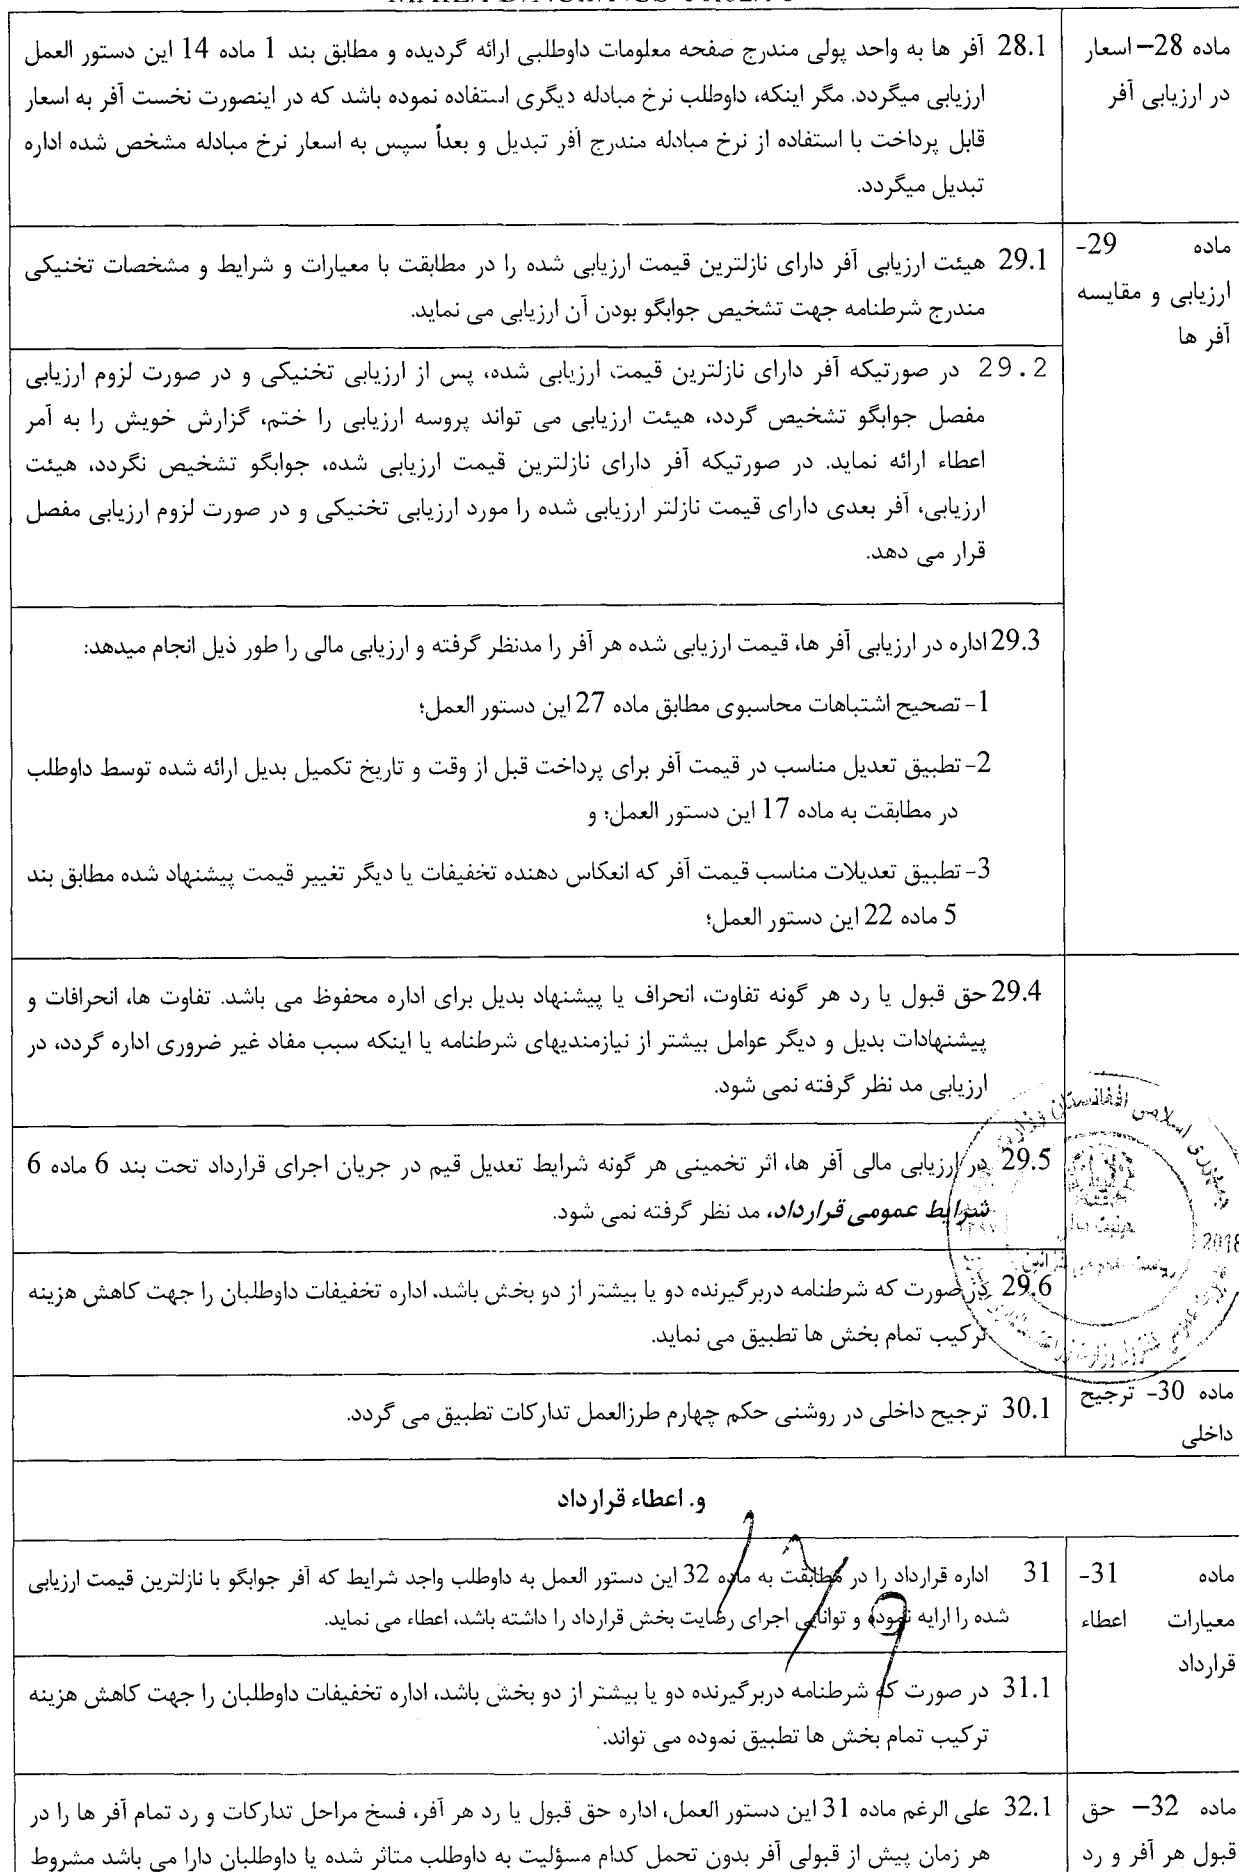 ماده 28– اسعار
در ارزیابی آفر
28.1 آفر ها به واحد پولی مندرج صفحه معلومات داوطلبی ارائه گردیده و مطابق بند 1 ماده 14 این دستور العمل
ارزیابی میگردد. مگر اینکه، داوطلب نرخ مبادله دیگری استفاده نموده باشد که در اینصورت نخست آفر به اسعار
قابل پرداخت با استفاده از نرخ مبادله مندرج آفر تبدیل و بعداً سپس به اسعار نرخ مبادله مشخص شده اداره
تبدیل میگردد.
ماده 29-
ارزیابی و مقایسه
آفر ها
29.1 هیئت ارزیابی آفر دارای نازلترین قیمت ارزیابی شده را در مطابقت با معیارات و شرایط و مشخصات تخنیکی
مندرج شرطنامه جهت تشخیص جوابگو بودن آن ارزیابی می نماید.
29.2 در صورتیکه آفر دارای نازلترین قیمت ارزیابی شده، پس از ارزیابی تخنیکی و در صورت لزوم ارزیابی
مفصل جوابگو تشخیص گردد، هیئت ارزیابی می تواند پروسه ارزیابی را ختم، گزارش خویش را به آمر
اعطاء ارائه نماید. در صورتیکه آفر دارای نازلترین قیمت ارزیابی شده، جوابگو تشخیص نگردد، هیئت
ارزیابی، آفر بعدی دارای قیمت نازلتر ارزیابی شده را مورد ارزیابی تخنیکی و در صورت لزوم ارزیابی مفصل
قرار می دهد.
29.3 اداره در ارزیابی آفر ها، قیمت ارزیابی شده هر آفر را مدنظر گرفته و ارزیابی مالی را طور ذیل انجام میدهد:
1- تصحیح اشتباهات محاسبوی مطابق ماده 27 این دستور العمل؛
2- تطبیق تعدیل مناسب در قیمت آفر برای پرداخت قبل از وقت و تاریخ تکمیل بدیل ارائه شده توسط داوطلب
در مطابقت به ماده 17 این دستور العمل؛ و
3- تطبیق تعدیلات مناسب قیمت آفر که انعکاس دهنده تخفیفات یا دیگر تغییر قیمت پیشنهاد شده مطابق بند
5 ماده 22 این دستور العمل؛
29.4 حق قبول یا رد هر گونه تفاوت، انحراف یا پیشنهاد بدیل برای اداره محفوظ می باشد. تفاوت ها، انحرافات و
پیشنهادات بدیل و دیگر عوامل بیشتر از نیازمندیهای شرطنامه یا اینکه سبب مفاد غیر ضروری اداره گردد، در
ارزیابی مد نظر گرفته نمی شود.
29.5 در ارزیابی مالی آفر ها، اثر تخمینی هر گونه شرایط تعدیل قیم در جریان اجرای قرارداد تحت بند 6 ماده 6
شرایط عمومی قرارداد، مد نظر گرفته نمی شود.
29.6 در صورت که شرطنامه دربرگیرنده دو یا بیشتر از دو بخش باشد. اداره تخفیفات داوطلبان را جهت کاهش هزینه
ترکیب تمام بخش ها تطبیق می نماید.
2018
ماده 30- ترجیح
داخلی
30.1 ترجیح داخلی در روشنی حکم چهارم طرزالعمل تدارکات تطبیق می گردد.
و. اعطاء قرارداد
ماده 31-
معیارات اعطاء
قرارداد
31 اداره قرارداد را در مطابقت به ماده 32 این دستور العمل به داوطلب واجد شرایط که آفر جوابگو با نازلترین قیمت ارزیابی
شده را ارایه نموده و توانایی اجرای رضایت بخش قرارداد را داشته باشد، اعطاء می نماید.
31.1 در صورت که شرطنامه دربرگیرنده دو یا بیشتر از دو بخش باشد، اداره تخفیفات داوطلبان را جهت کاهش هزینه
ترکیب تمام بخش ها تطبیق نموده می تواند.
ماده 32– حق
قبول هر آفر و رد
32.1 علی الرغم ماده 31 این دستور العمل، اداره حق قبول یا رد هر آفر، فسخ مراحل تدارکات و رد تمام آفر ها را در
هر زمان پیش از قبولی آفر بدون تحمل کدام مسؤلیت به داوطلب متاثر شده یا داوطلبان دارا می باشد مشروط